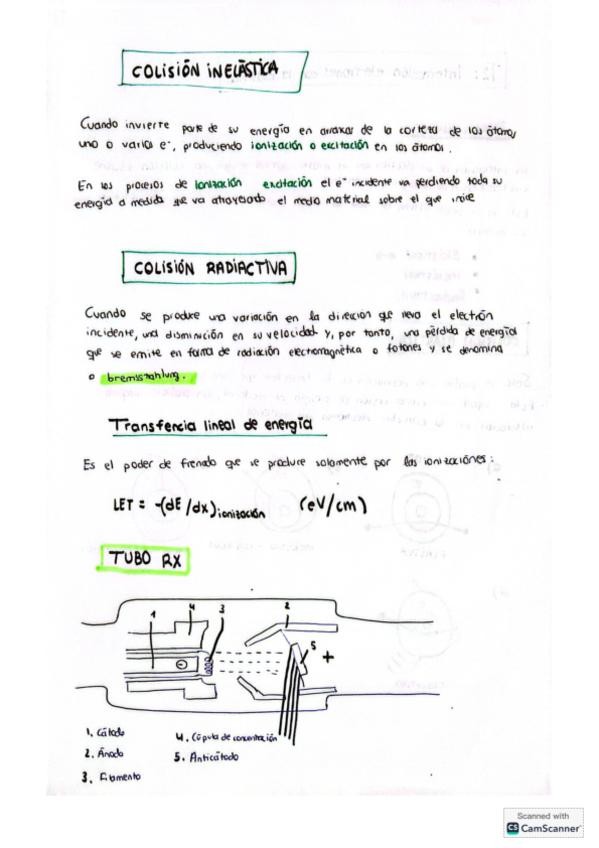 COLISIÓN INELÁSTICA
Cuando invierte parte de su energía en arrancar de la corteza de los átomos
uno o varios e⁻, produciendo ionización o excitación en los átomos.
En los procesos de ionización excitación el e⁻ incidente va perdiendo toda su
energía a medida que va atravesado el medio material sobre el que incide
COLISIÓN RADIACTIVA
Cuando se produce una variación en la dirección que lleva el electrón
incidente, una disminición en su velocidad y, por tanto, una pérdida de energía
que se emite en forma de radiación electromagnética o fotones y se denomina
o bremsstrahlung.
Transfencia lineal de energía
Es el poder de frenado que se produce solamente por las ionizaciónes:
LET = -(dE/dx) ionización (eV/cm)
TUBO RX
1 4 3 2
5
- +
1. Cátodo 4. Cúpula de concentración
2. Ánodo 5. Anticátodo
3. Filamento
Scanned with
CS CamScanner